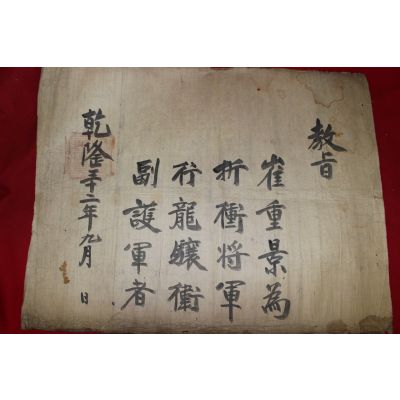 敎旨
崔重景為
折衝將軍
行龍驤衛
副護軍者
乾隆三十二年九月　日